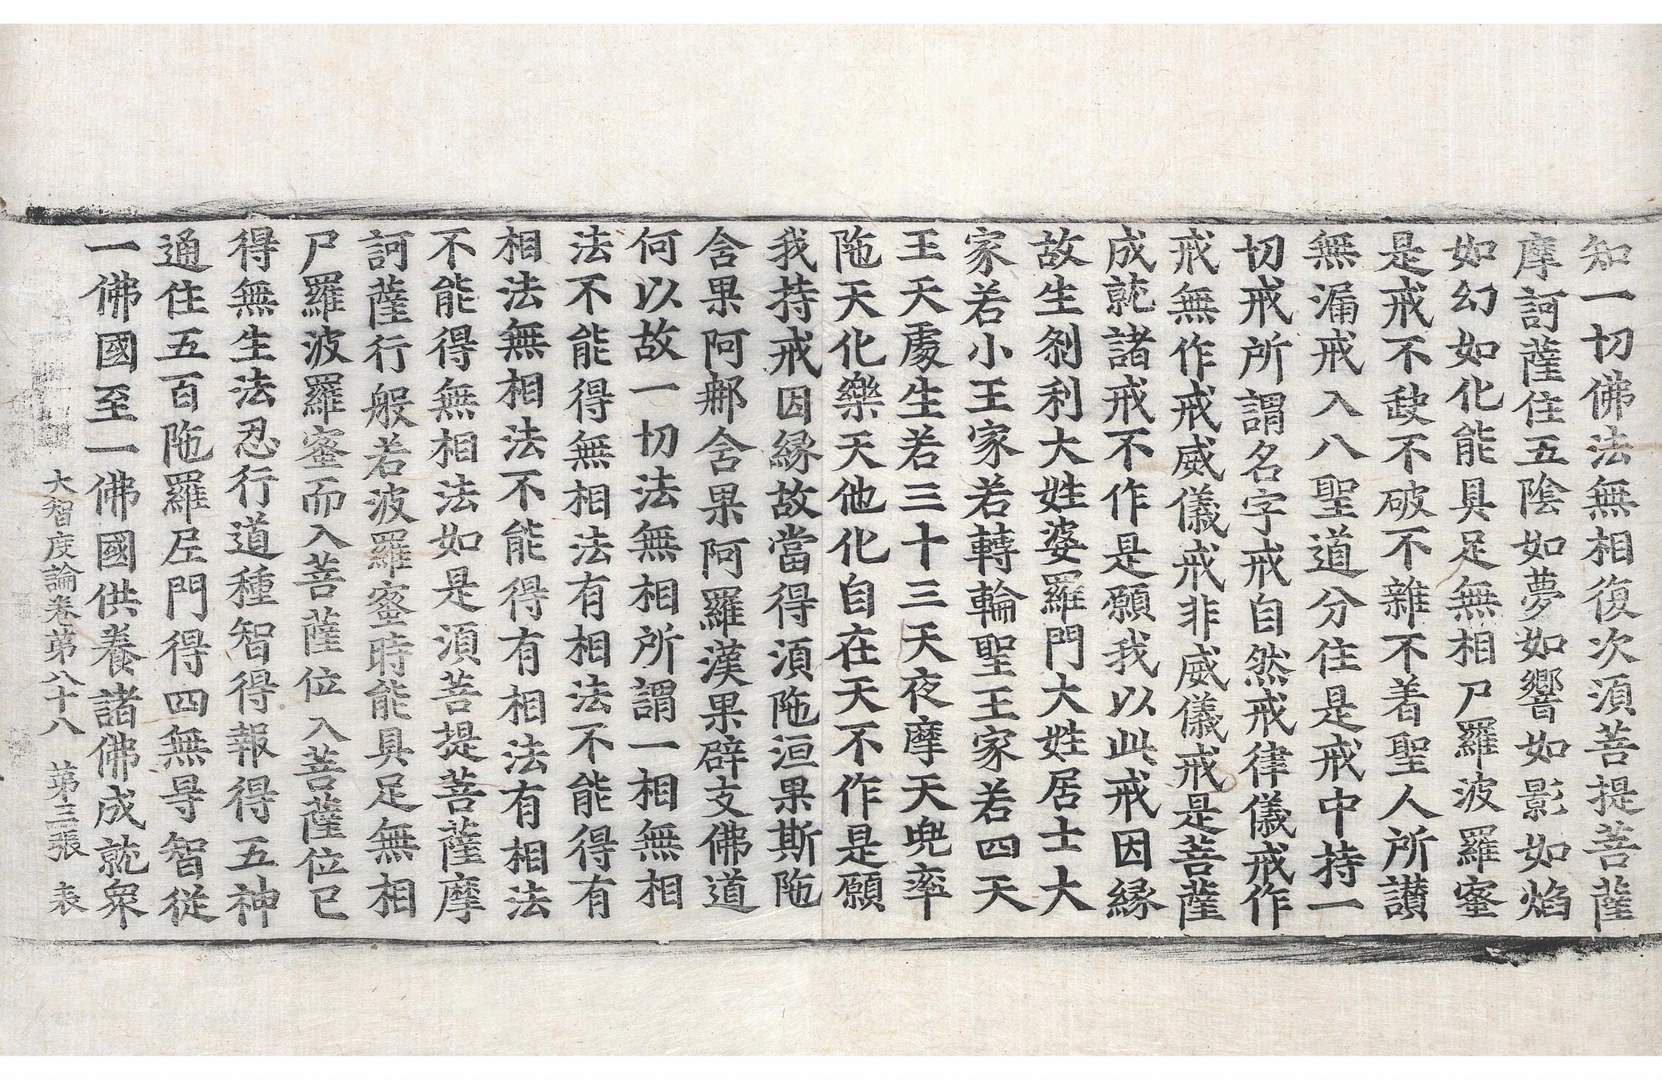 知一切佛法無相復次須菩提菩薩
摩訶薩住五陰如夢如響如影如焰
如幻如化能具足無相尸羅波羅蜜
是戒不缺不破不雜不着聖人所讃
無漏戒入八聖道分住是戒中持一
切戒所謂名字戒自然戒律儀戒作
戒無作戒威儀戒非威儀戒是菩薩
成就諸戒不作是願我以此戒因緣
故生刹利大姓婆羅門大姓居士大
家若小王家若轉輪聖王家若四天
王天處生若三十三天夜摩天兜率
陁天化樂天他化自在天不作是願
我持戒因緣故當得須陁洹果斯陁
含果阿那含果阿羅漢果辟支佛道
何以故一切法無相所謂一相無相
法不能得無相法有相法不能得有
相法無相法不能得有相法有相法
不能得無相法如是須菩提菩薩摩
訶薩行般若波羅蜜時能具足無相
尸羅波羅蜜而入菩薩位入菩薩位已
得無生法忍行道種智得報得五神
通住五百陁羅尼門得四無㝵智從
一佛國至一佛國供養諸佛成就衆
大智度論卷第八十八 第三張 表